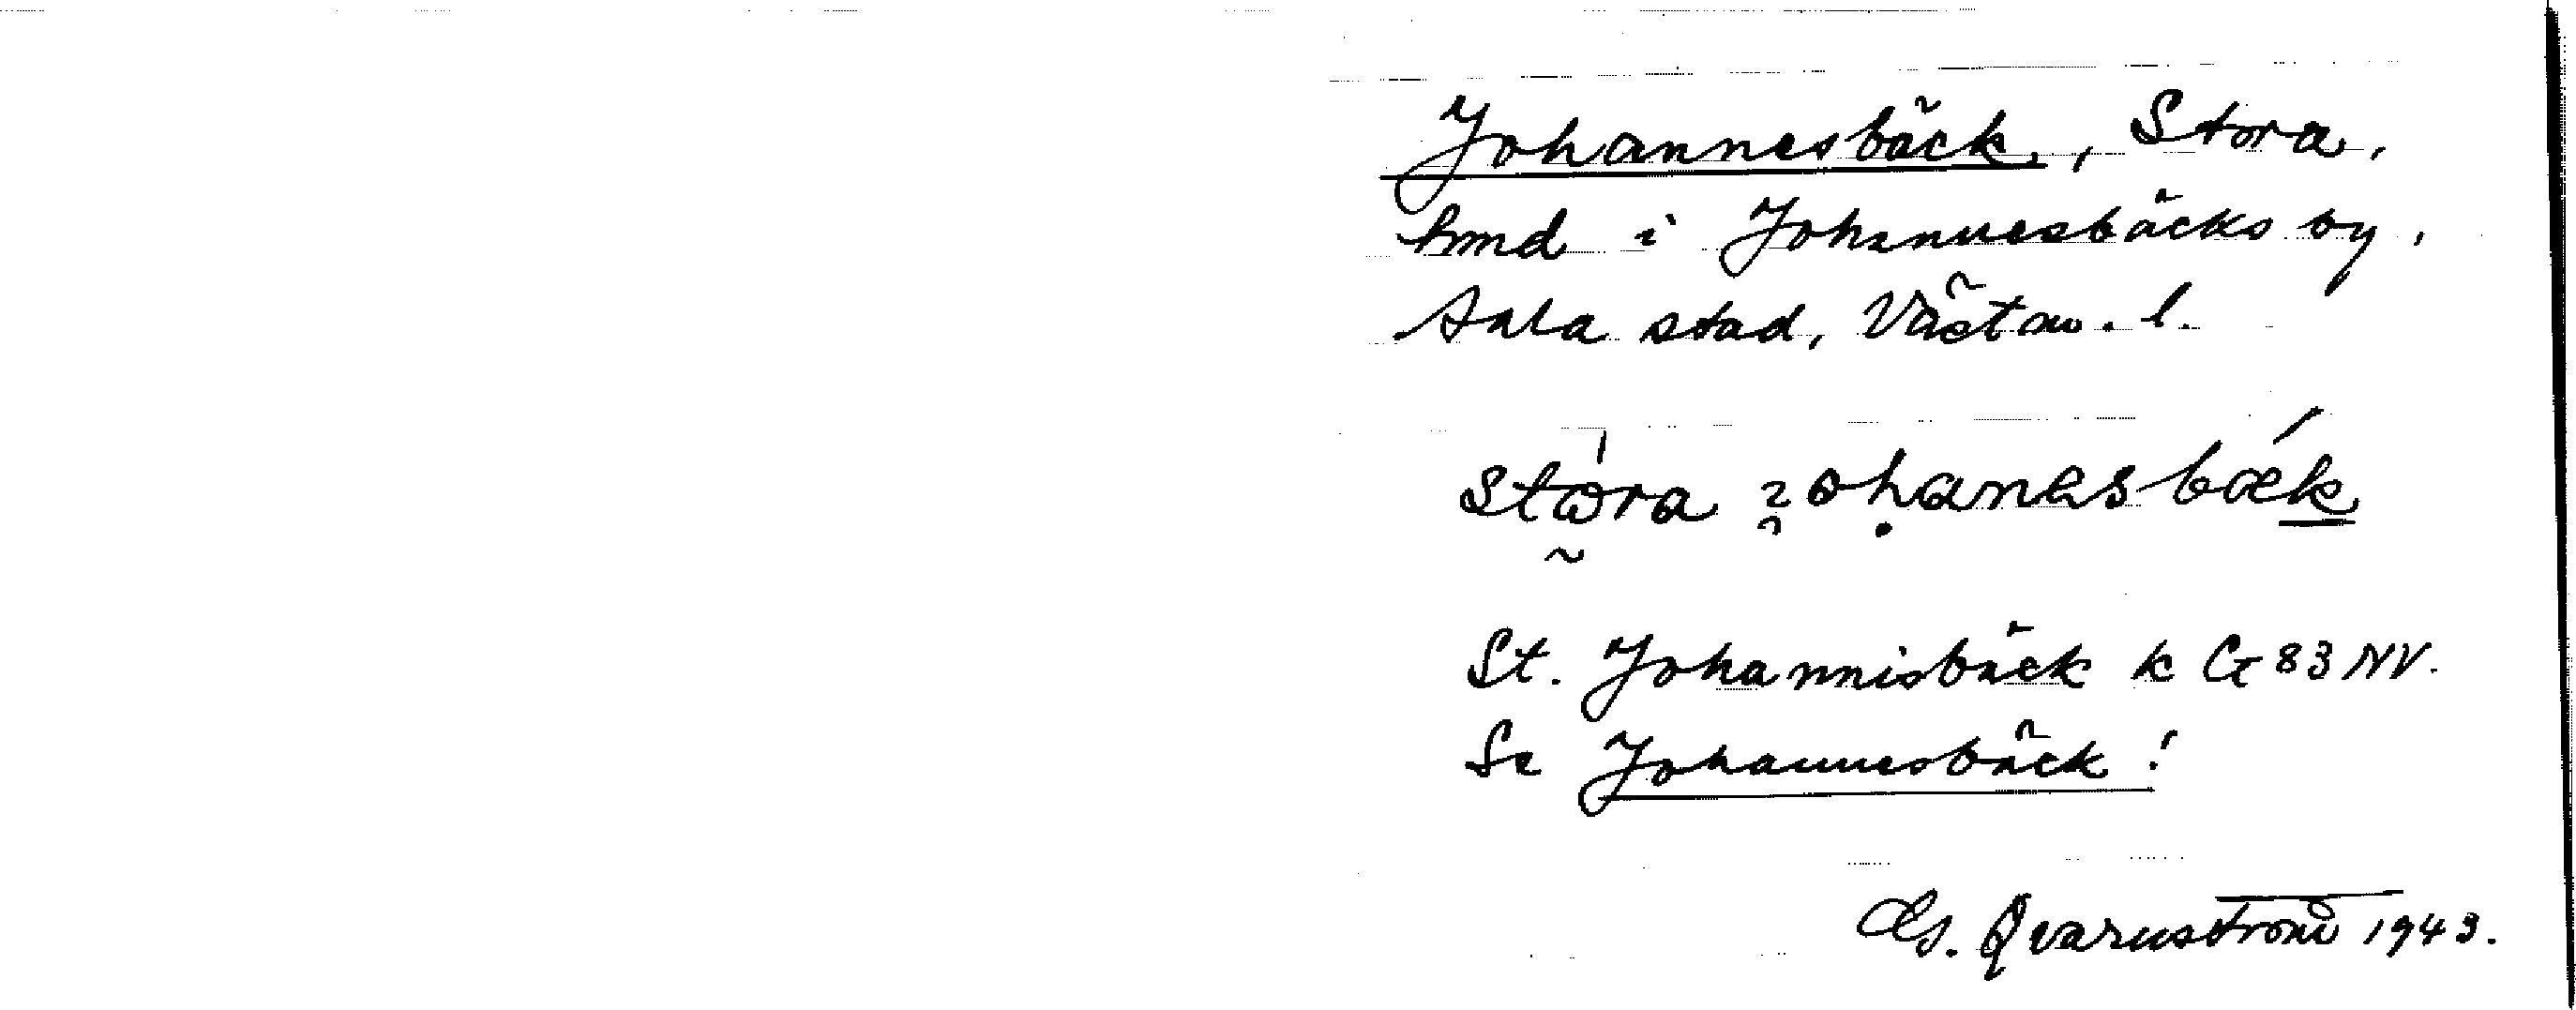 Johannesbäck, Stora,
hmd i Johannesbäcks by,
Sala stad, Västm. l.
stora johanesbæk
St. Johannisbäck k G 83 NV.
Se Johannesbäck!
G. Qvarnström 1943.